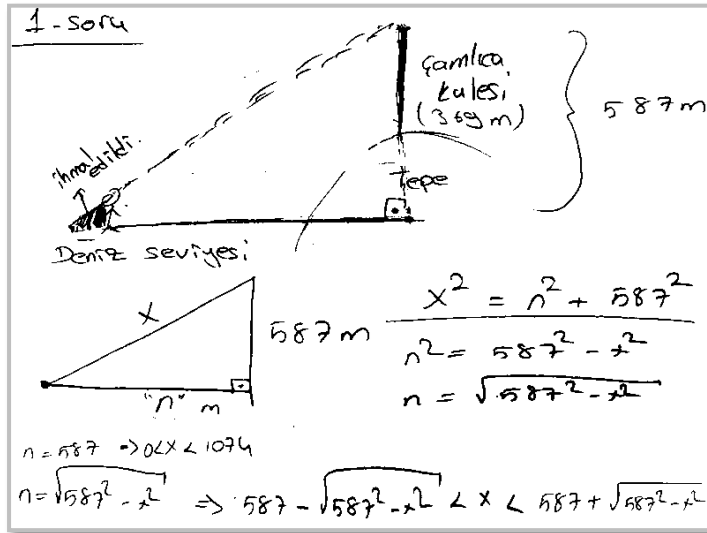 1-soru
Çamlıca
kulesi
(369 m)
587 m
ihmal
edildi.
Tepe
Deniz seviyesi
x
587 m
"n" m
x² = n² + 587²
n² = 587² - x²
n = √587² - x²
n = 587 → 0<x<1074
n = √587² - x² ⇒ 587 - √587² - x² < x < 587 + √587² - x²